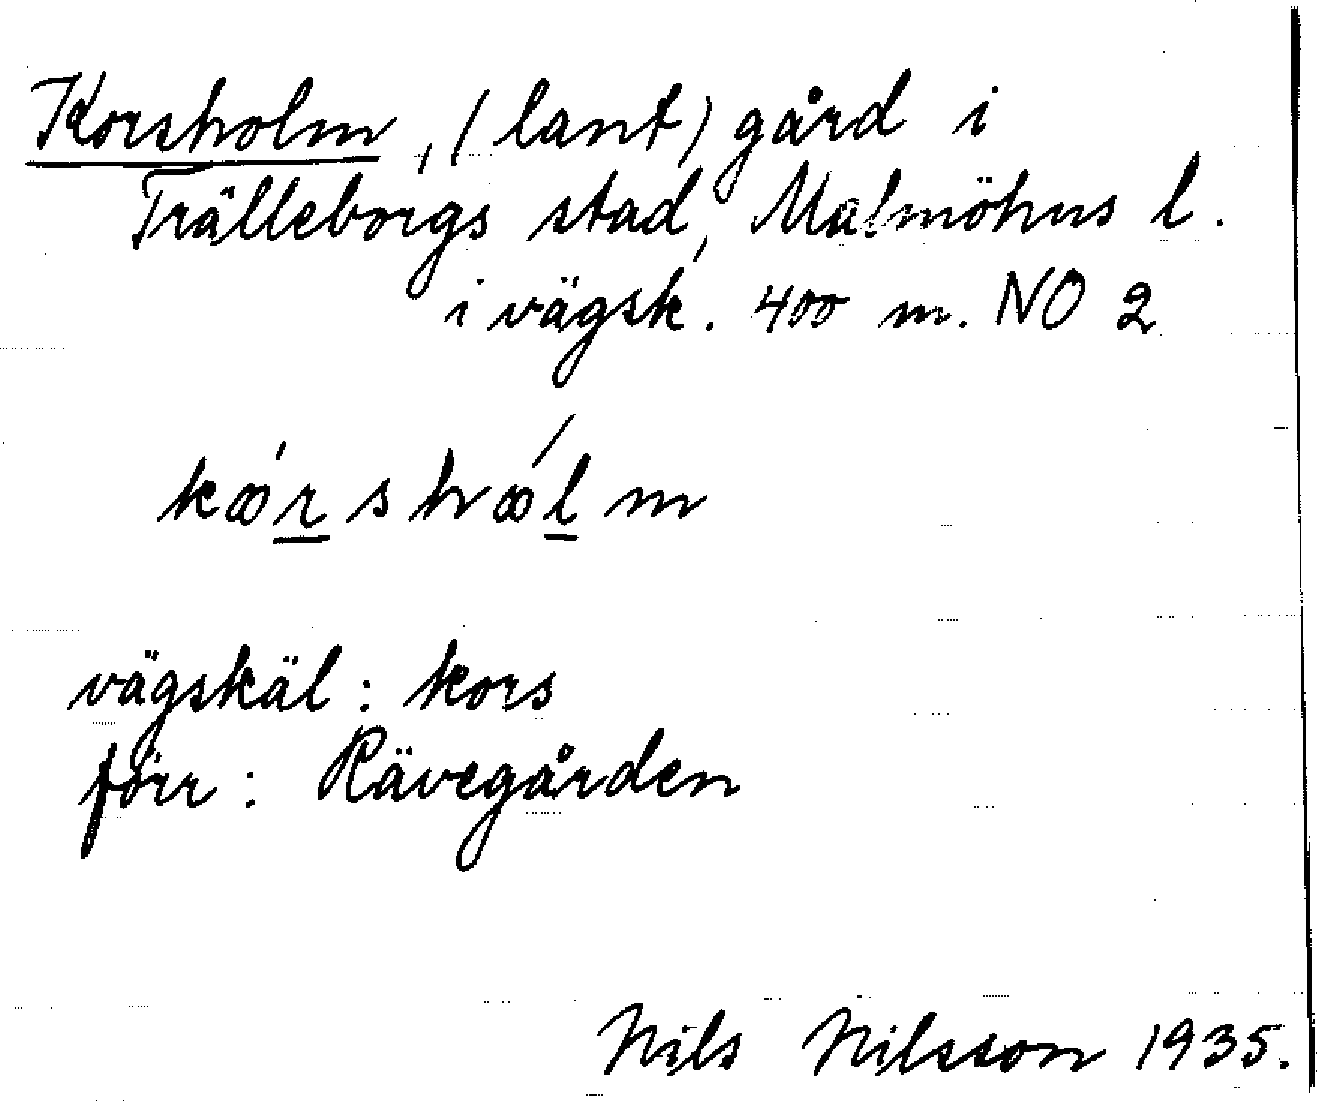 Korsholm, (lant) gård i
Trälleborgs stad, Malmöhus l.
i vägsk. 400 m. NO 2
kꝏ́rshꝏ́lm
vägskäl: kors
förr: Rävegården
Nils Nilsson 1935.